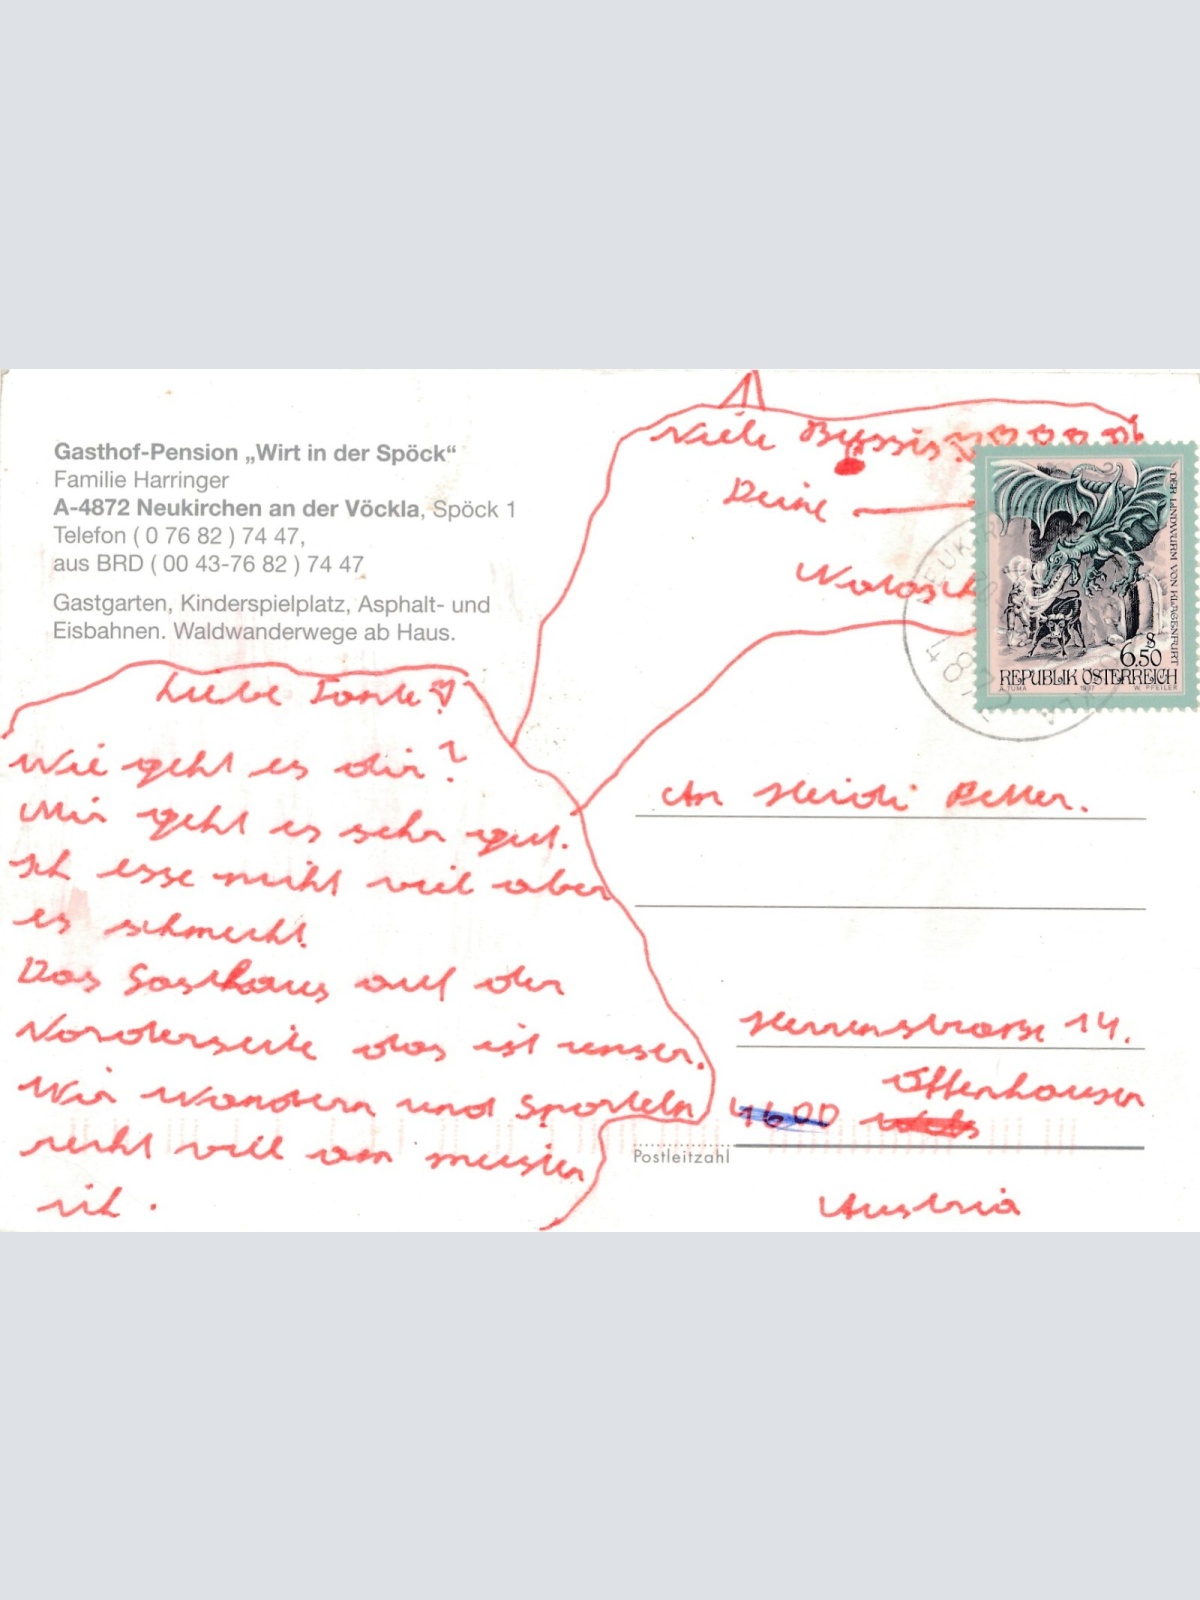 Gasthof-Pension „Wirt in der Spöck“
Familie Harringer
A-4872 Neukirchen an der Vöckla, Spöck 1
Telefon ( 0 76 82 ) 74 47,
aus BRD ( 00 43-76 82 ) 74 47
Gastgarten, Kinderspielplatz, Asphalt- und
Eisbahnen. Waldwanderwege ab Haus.
Liebe Tante
Wie geht es dir?
Mir geht es sehr gut.
Ich esse nicht viel aber
es schmeckt.
Das Gasthaus auf der
Vorderseite das ist unser.
Wir Wandern und Sporteln
nicht viel am meisten
ich.
Viele Bussis
Deine
DER LINDWURM VON KLAGENFURT
S
6.50
REPUBLIK ÖSTERREICH
A. TUMA 1997 W. PFEILER
An Heidi
Herrenstrasse 14.
Offenhausen
4600
Postleitzahl
Austria